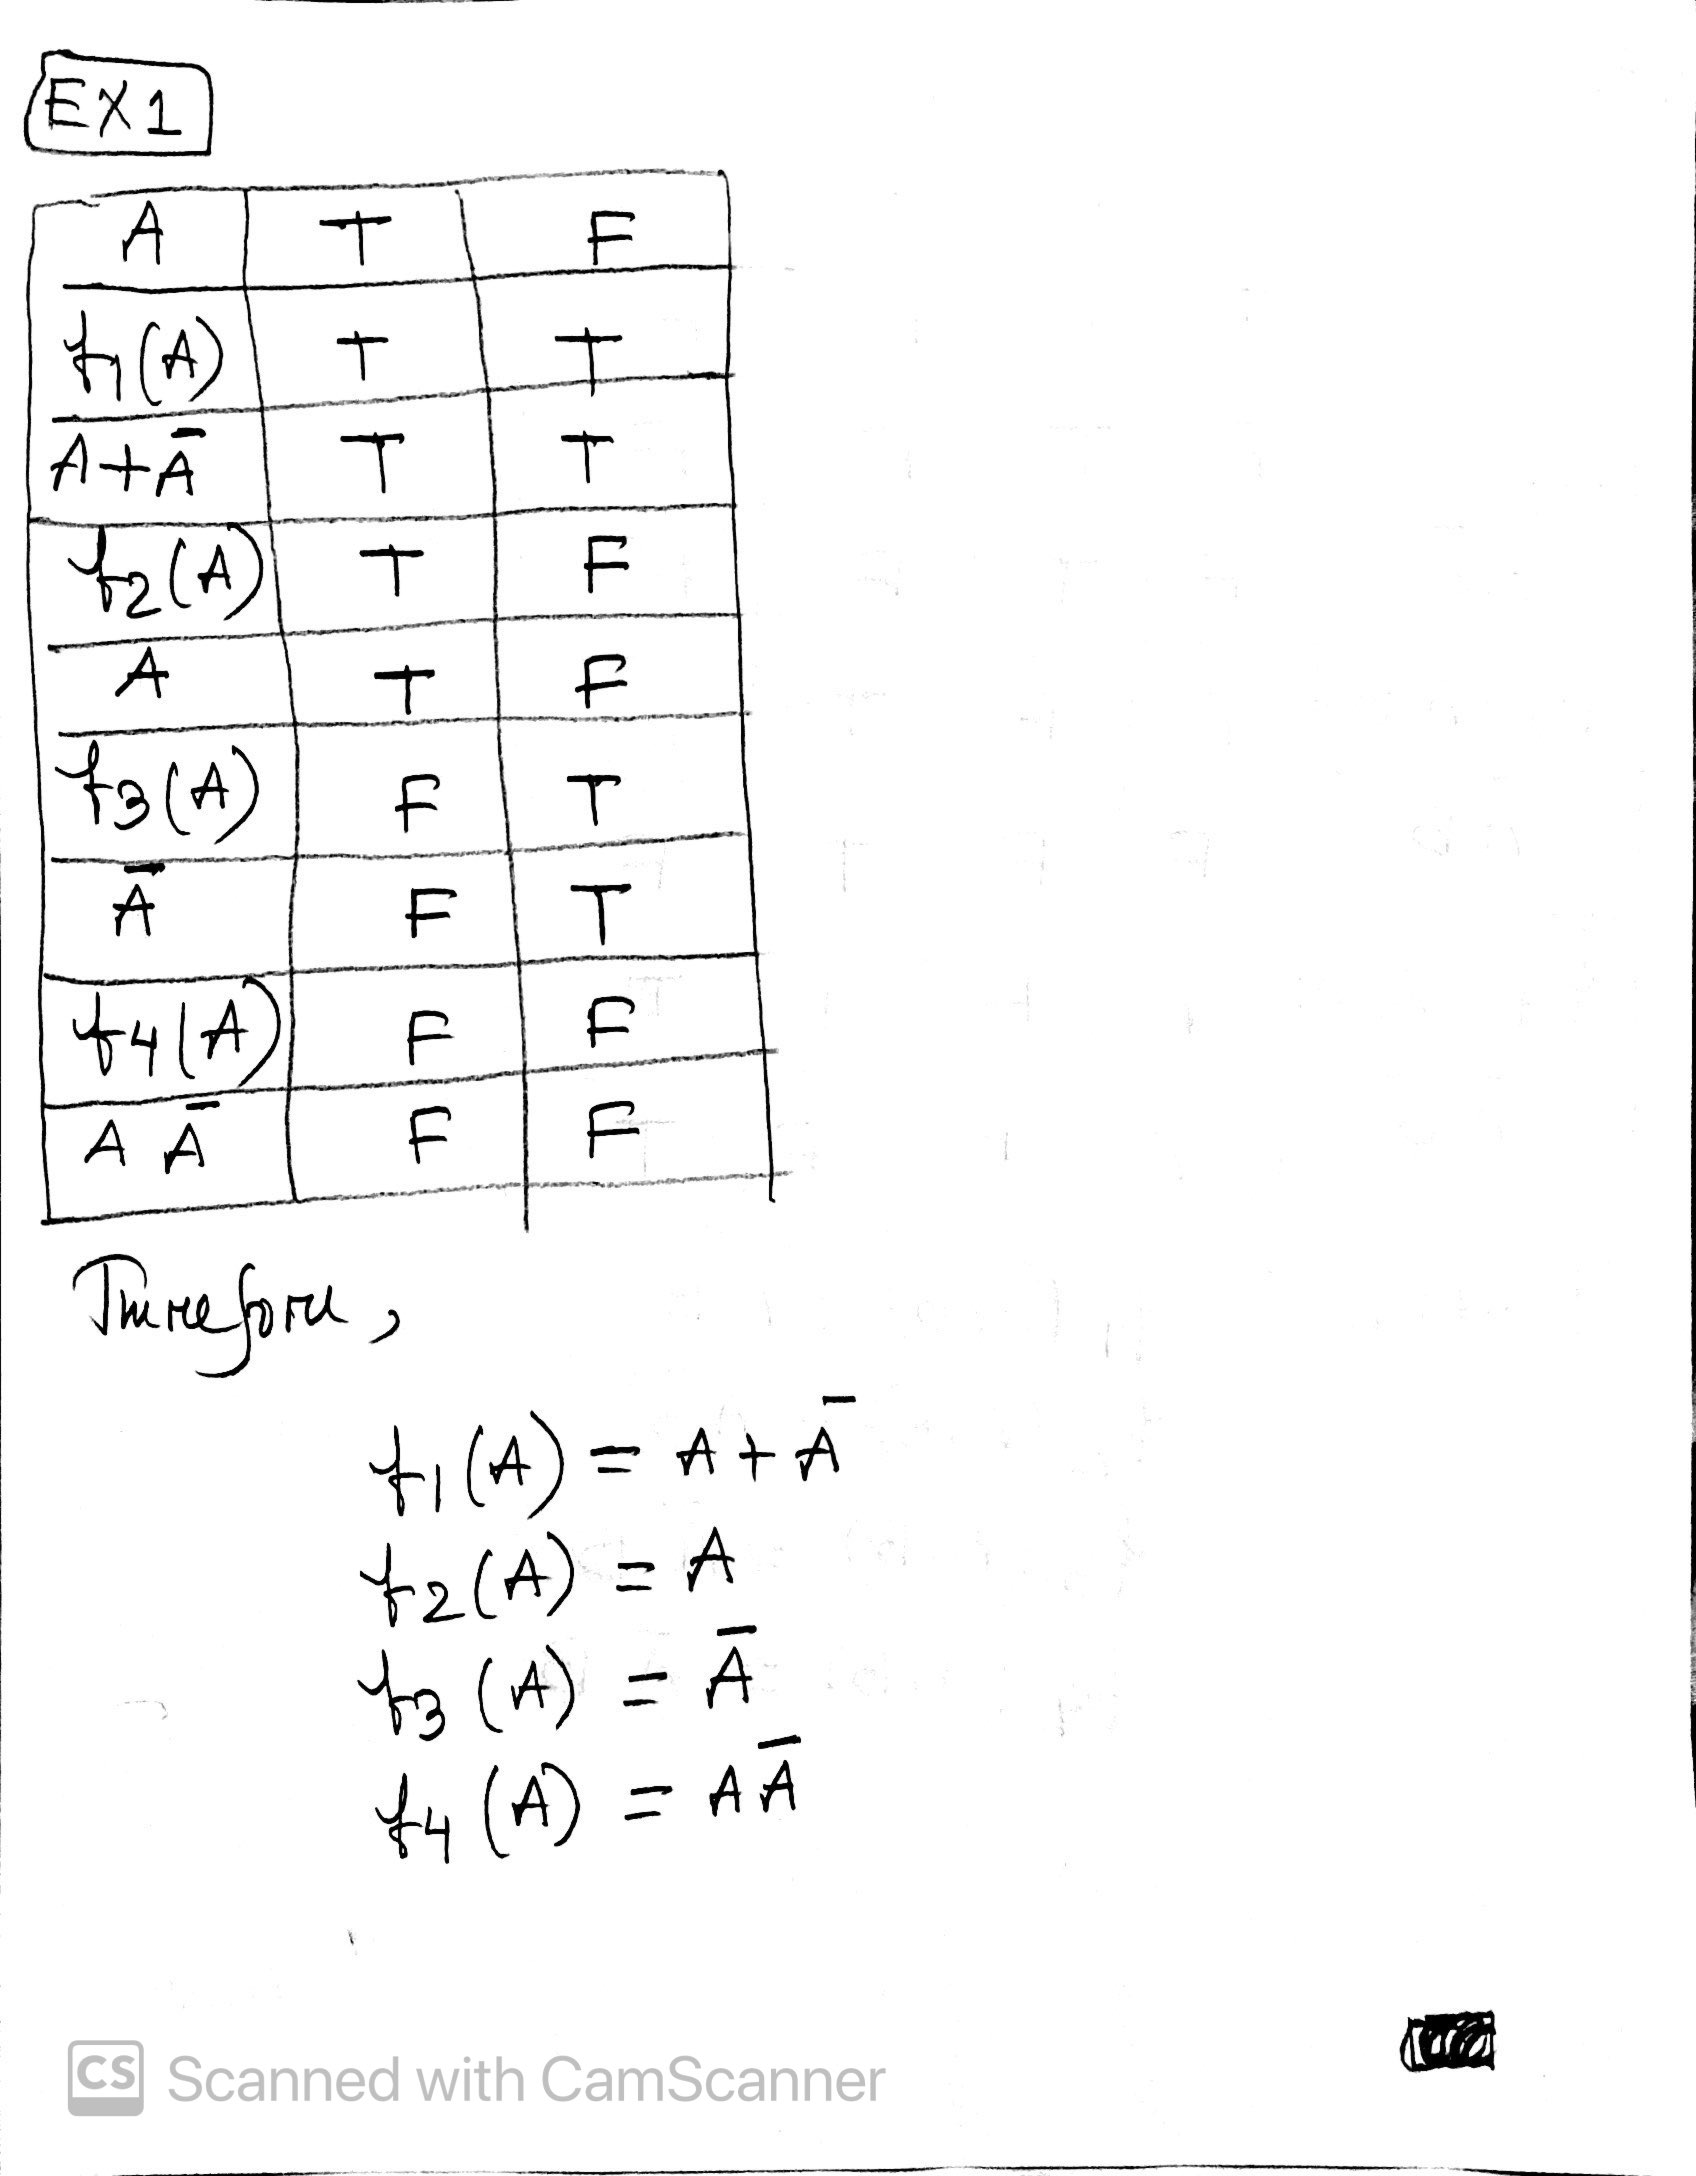 EX1
A T F
f1(A) T T
A+Ā T T
f2(A) T F
A T F
f3(A) F T
Ā F T
f4(A) F F
A Ā F F
Therefore,
f1(A) = A + Ā
f2(A) = A
f3(A) = Ā
f4(A) = A Ā
CS Scanned with CamScanner